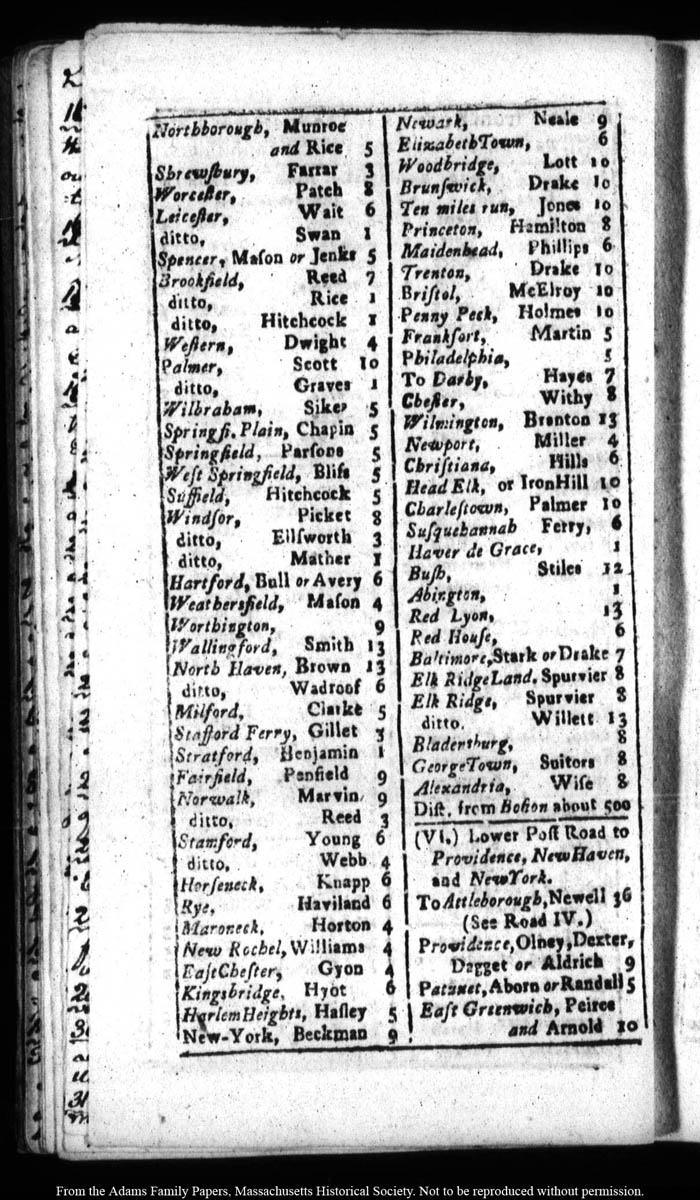 Northborough, Munroe
and Rice 5
Shrewſbury, Farrar 3
Worceſter, Patch 8
Leiceſter, Wait 6
ditto, Swan 1
Spencer, Maſon or Jenks 5
Brookfield, Reed 7
ditto, Rice 1
ditto, Hitchcock 1
Weſtern, Dwight 4
Palmer, Scott 10
ditto, Graves 1
Wilbraham, Sikes 5
Springfi. Plain, Chapin 5
Springfield, Parſons 5
Weſt Springfield, Bliſs 5
Suffield, Hitchcock 5
Windſor, Picket 8
ditto, Ellſworth 3
ditto, Mather 1
Hartford, Bull or Avery 6
Weathersfield, Maſon 4
Worthington, 9
Wallingford, Smith 13
North Haven, Brown 13
ditto, Wadroof 6
Milford, Clarke 5
Stafford Ferry, Gillet 3
Stratford, Benjamin 1
Fairfield, Penfield 9
Norwalk, Marvin 9
ditto, Reed 3
Stamford, Young 6
ditto, Webb 4
Horſeneck, Knapp 6
Rye, Haviland 6
Maroneck, Horton 4
New Rochel, Williams 4
Eaſt Cheſter, Gyon 4
Kingsbridge, Hyot 6
Harlem Heights, Haſley 5
New-York, Beckman 9
Newark, Neale 9
Elizabeth Town, 6
Woodbridge, Lott 10
Brunſwick, Drake 10
Ten miles run, Jones 10
Princeton, Hamilton 8
Maidenhead, Phillips 6
Trenton, Drake 10
Briſtol, McElroy 10
Penny Peck, Holmes 10
Frankfort, Martin 5
Philadelphia, 5
To Darby, Hayes 7
Cheſter, Withy 8
Wilmington, Brenton 13
Newport, Miller 4
Chriſtiana, Hills 6
Head Elk, or IronHill 10
Charleſtown, Palmer 10
Suſquehannah Ferry, 6
Haver de Grace, 1
Buſh, Stiles 12
Abington, 1
Red Lyon, 13
Red Houſe, 6
Baltimore, Stark or Drake 7
Elk Ridge Land, Spurvier 8
Elk Ridge, Spurvier 8
ditto. Willett 13
Bladensburg, 8
George Town, Suitors 8
Alexandria, Wiſe 8
Diſt. from Boſton about 500
(VI.) Lower Poſt Road to
Providence, New Haven,
and New York.
To Attleborough, Newell 36
(See Road IV.)
Providence, Olney, Dexter,
Dagget or Aldrich 9
Patuxet, Aborn or Randall 5
Eaſt Greenwich, Peirce
and Arnold 10
From the Adams Family Papers, Massachusetts Historical Society. Not to be reproduced without permission.